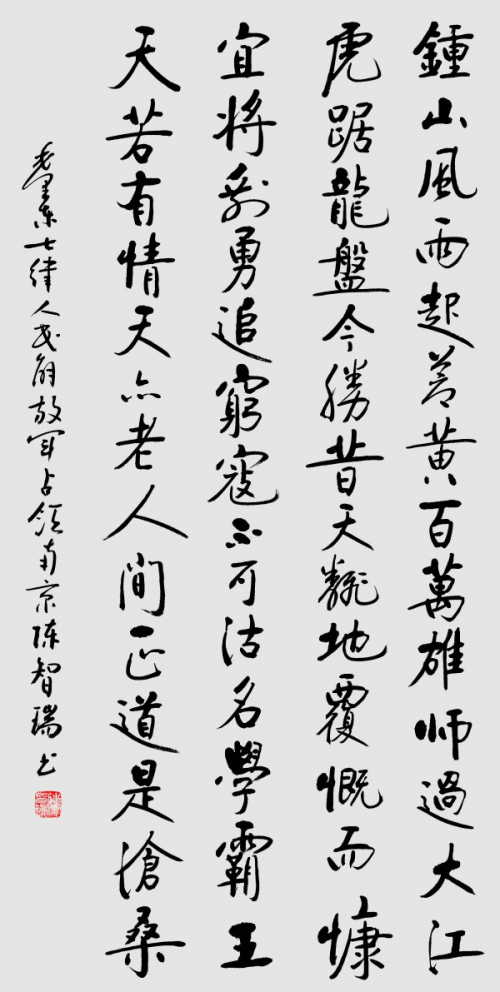 鍾山風雨起蒼黃百萬雄師過大江
虎踞龍盤今勝昔天飜地覆慨而慷
宜將剩勇追窮寇不可沽名學霸王
天若有情天亦老人間正道是滄桑
毛澤東七律人民解放军占領南京陈智瑞书